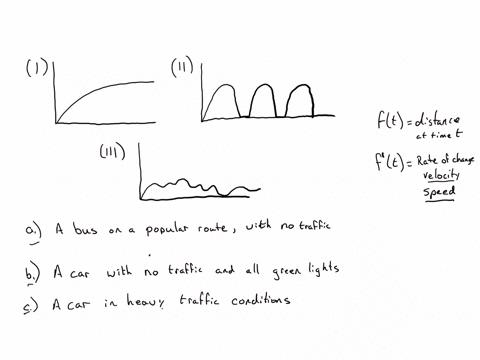 (I)
(II)
(III)
f(t) = distance
at time t
f'(t) = Rate of change
velocity
speed
a.) A bus on a popular route, with no traffic
b.) A car with no traffic and all green lights
c.) A car in heavy traffic conditions